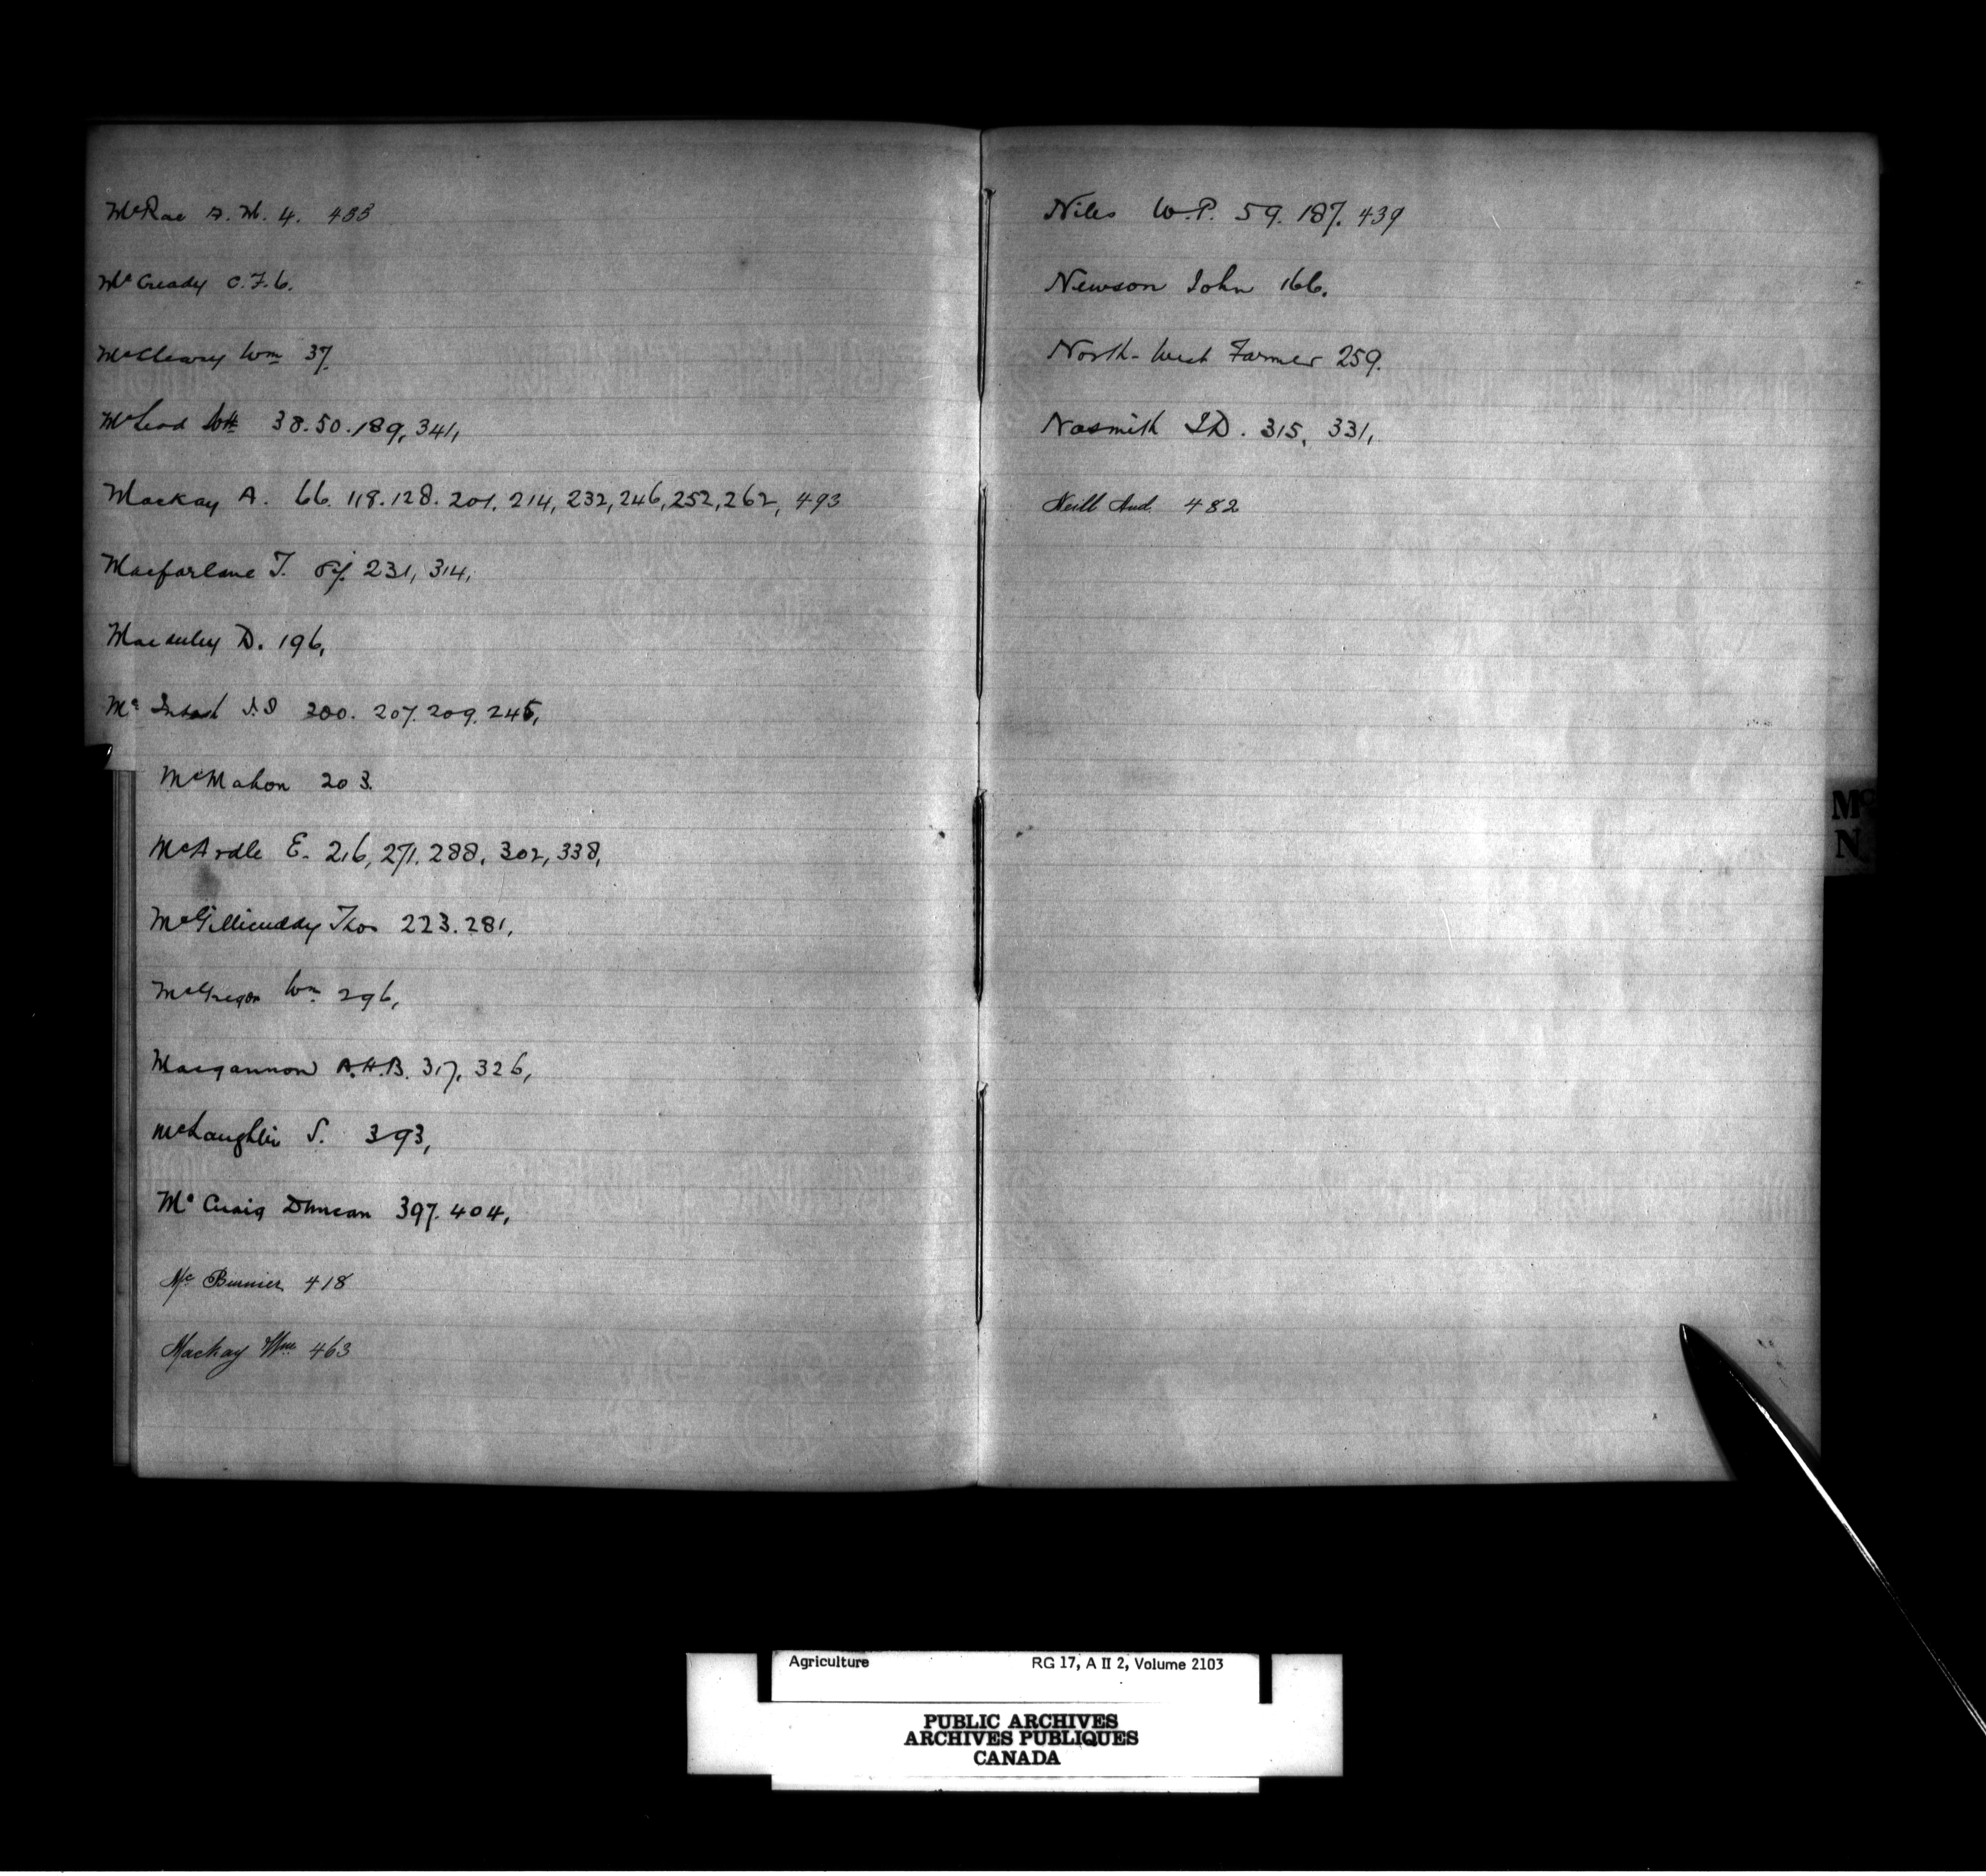 McRae D. M. 4. 433
McCready C. F. 6.
McCleary Wm 37.
McLeod 38. 50. 189, 341,
Mackay A. 66. 118. 128. 201. 214, 232, 246, 252, 262, 493
Macfarlane T. 87. 231, 314,
Macauley D. 196,
McIntosh 200. 207. 209. 245,
McMahon 203.
McArdle E. 216, 271. 288, 302, 338,
McGillicuddy Thos 223. 281,
McGregor Wm 296,
Macgannon A.H.B. 317, 326,
McLaughlin S. 393,
McCuaig Duncan 397. 404,
Mc Burnier 418
Mackay Wm 463
Niles W.P. 59. 187. 439
Newson John 166.
North-West Farmer 259.
Nasmith J.D. 315, 331,
Neill And. 482
Mc
N
Agriculture RG 17, A II 2, Volume 2103
PUBLIC ARCHIVES
ARCHIVES PUBLIQUES
CANADA